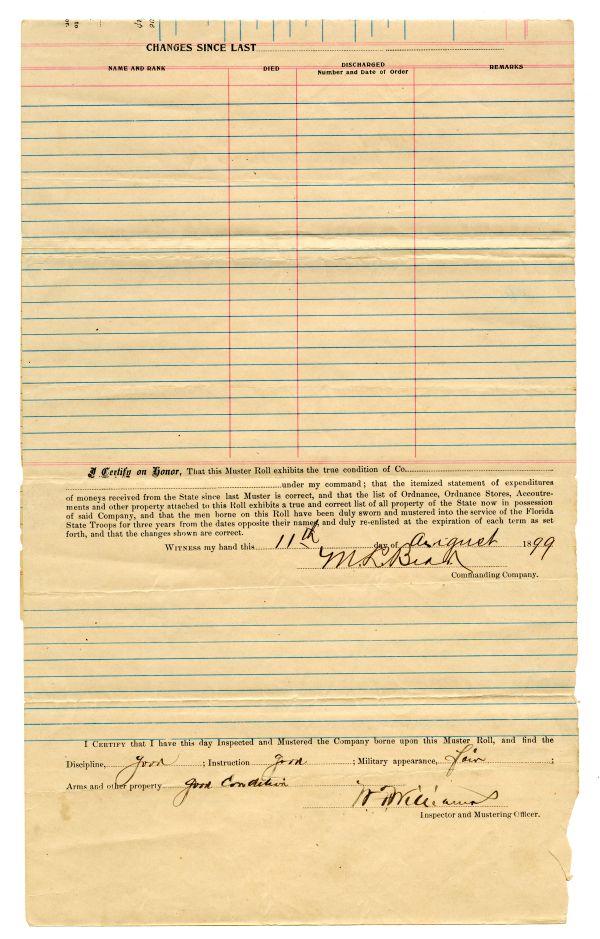 CHANGES SINCE LAST
NAME AND RANK DIED DISCHARGED Number and Date of Order REMARKS
I Certify on Honor, That this Muster Roll exhibits the true condition of Co.
under my command; that the itemized statement of expenditures
of moneys received from the State since last Muster is correct, and that the list of Ordnance, Ordnance Stores, Accoutre-
ments and other property attached to this Roll exhibits a true and correct list of all property of the State now in possession
of said Company, and that the men borne on this Roll have been duly sworn and mustered into the service of the Florida
State Troops for three years from the dates opposite their names and duly re-enlisted at the expiration of each term as set
forth, and that the changes shown are correct.
WITNESS my hand this 11th day of August 1899
M L
Commanding Company.
I CERTIFY that I have this day Inspected and Mustered the Company borne upon this Muster Roll, and find the
Discipline, Good ; Instruction Good ; Military appearance, Fair ;
Arms and other property Good Condition
Williams
Inspector and Mustering Officer.